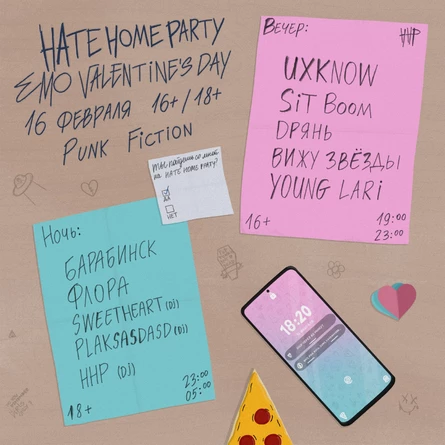 HATE HOME PARTY
EMO VALENTINE'S DAY
16 ФЕВРАЛЯ 16+/18+
PUNK FICTION
ВЕЧЕР:
HHP
UXKNOW
SIT BOOM
ДРЯНЬ
ВИЖУ ЗВЁЗДЫ
YOUNG LARI
16+
19:00
23:00
ТЫ ПОЙДЁШЬ СО МНОЙ
НА HATE HOME PARTY?
ДА
НЕТ
НОЧЬ:
БАРАБИНСК
ФЛОРА
SWEETHEART (DJ)
PLAKSASDASD (DJ)
HHP (DJ)
23:00
05:00
18+
18:20